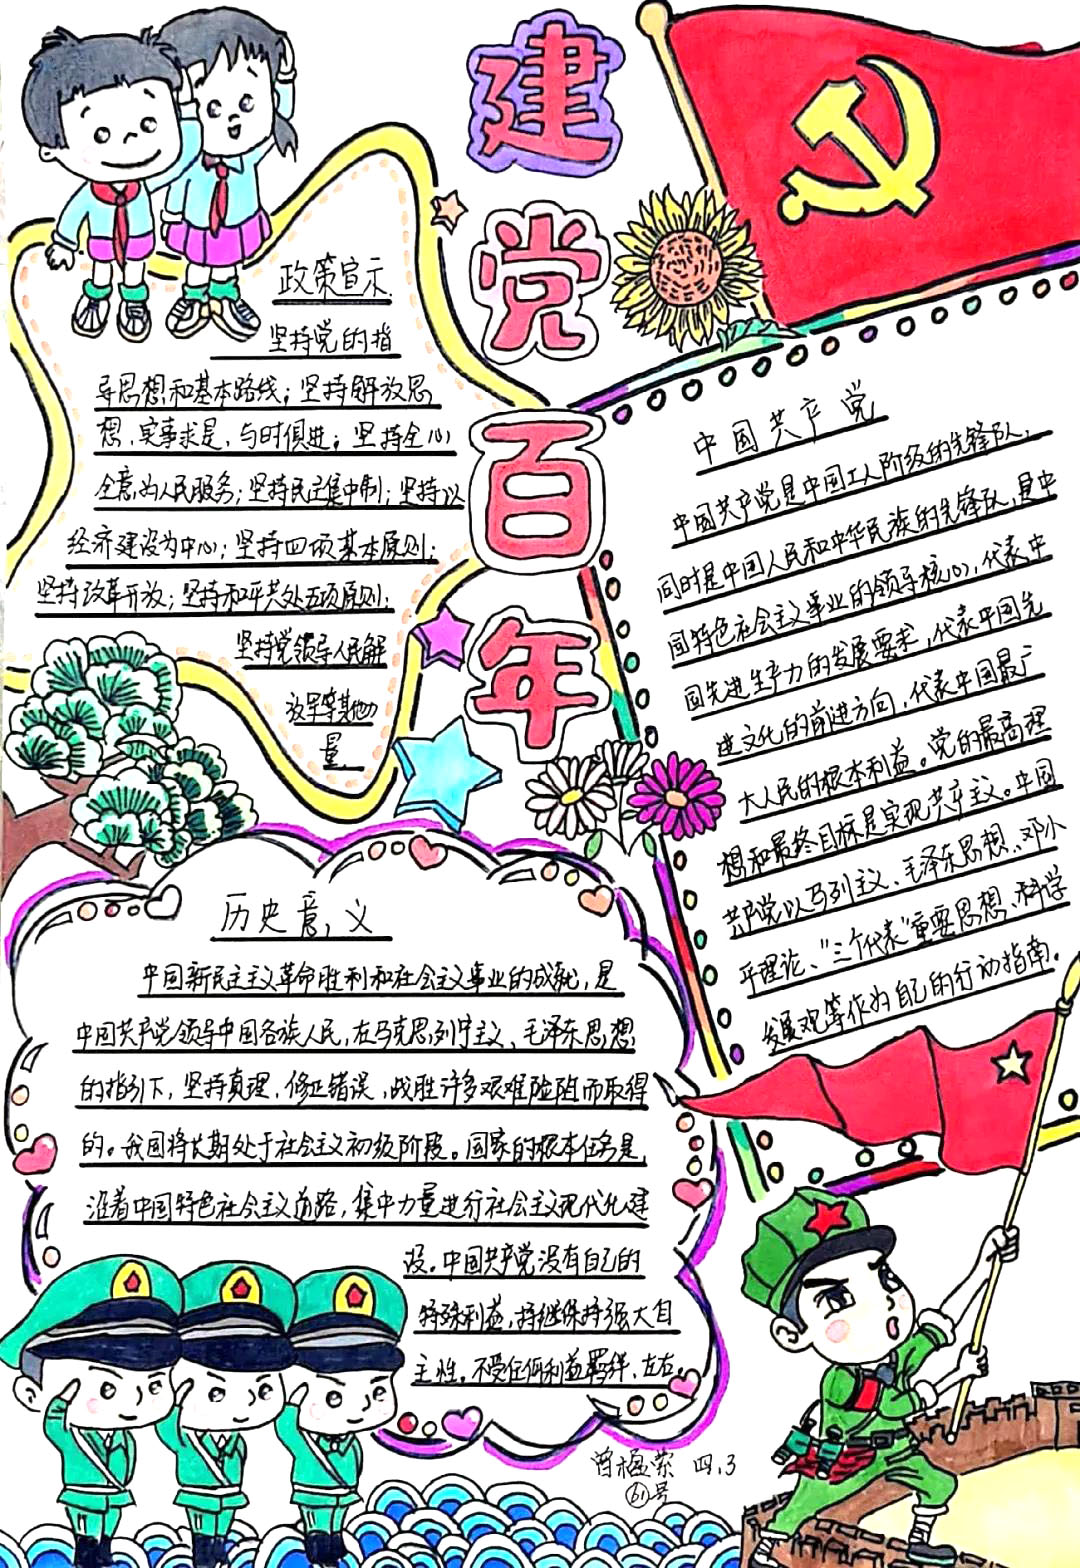 建
党
百
年
政策宣示
坚持党的指
导思想和基本路线；坚持解放思
想，实事求是，与时俱进；坚持全心
全意为人民服务；坚持民主集中制；坚持以
经济建设为中心；坚持四项基本原则；
坚持改革开放；坚持和平共处五项原则；
坚持党领导人民解
放军等其他力
量
中国共产党
中国共产党是中国工人阶级的先锋队，
同时是中国人民和中华民族的先锋队，是中
国特色社会主义事业的领导核心，代表中
国先进生产力的发展要求，代表中国先
进文化的前进方向，代表中国最广
大人民的根本利益。党的最高理
想和最终目标是实现共产主义。中国
共产党以马列主义、毛泽东思想、邓小
平理论、“三个代表”重要思想、科学
发展观等作为自己的行动指南。
历史意义
中国新民主主义革命胜利和社会主义事业的成就，是
中国共产党领导中国各族人民，在马克思列宁主义、毛泽东思想
的指引下，坚持真理，修正错误，战胜许多艰难险阻而取得
的。我国将长期处于社会主义初级阶段。国家的根本任务是，
沿着中国特色社会主义道路，集中力量进行社会主义现代化建
设。中国共产党没有自己的
特殊利益，持继保持强大自
主性。不受任何利益羁绊、左右。
四.3
61号